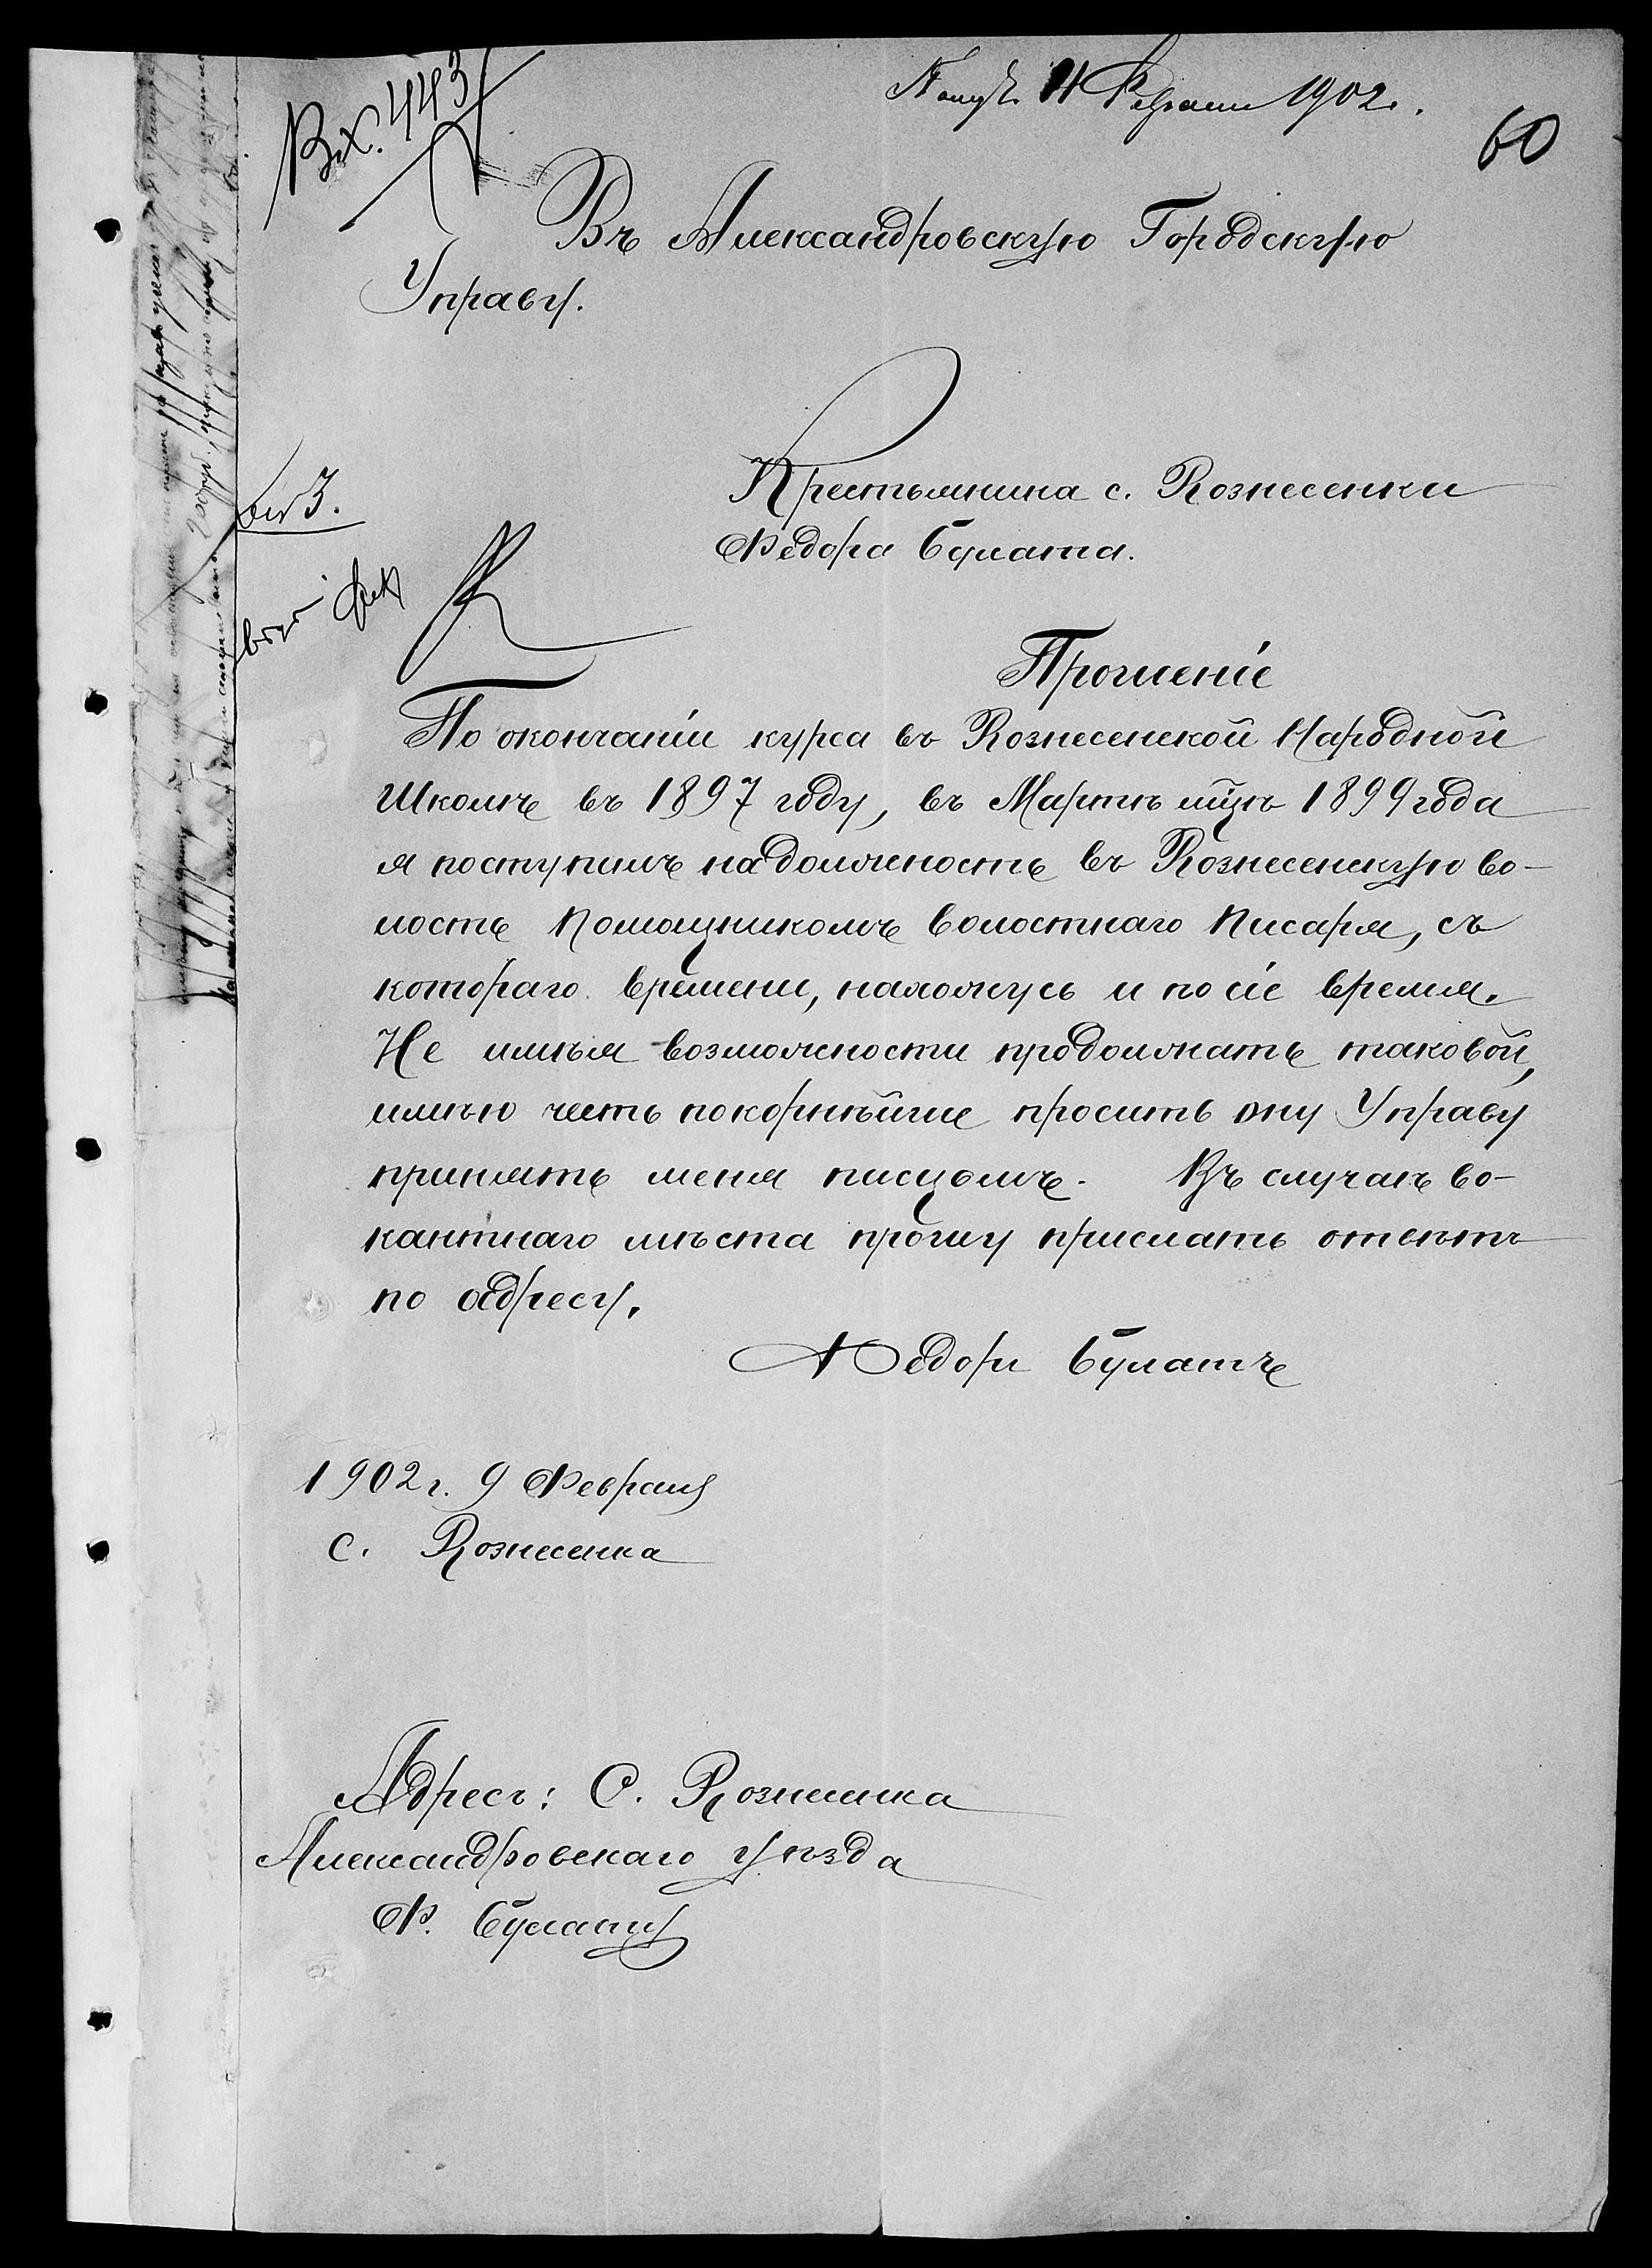 Вх. 443
Получ. 11 Февраля 1902.
60
Въ Александровскую Городскую
Управу.
Крестьянина с. Вознесенки
Федора Булата.
Прошеніе
По окончаніи курса въ Вознесенской Народной
Школѣ въ 1897 году, въ Мартѣ м̃цѣ 1899 года
я поступилъ на должность въ Вознесенскую во-
лость Помощникомъ Волостнаго Писаря, съ
котораго времени, нахожусь и по сіе время.
Не имѣя возможности продолжать таковой,
имѣю честь покорнѣйше просить ону Управу
принять меня писцомъ. Въ случаѣ во-
кантнаго мѣста прошу прислать отвѣтъ
по адресу.
Федоръ Булатъ
1902 г. 9 Февраля
с. Вознесенка
Адресъ: С. Вознесенка
Александровскаго уѣзда
Ф. Булату